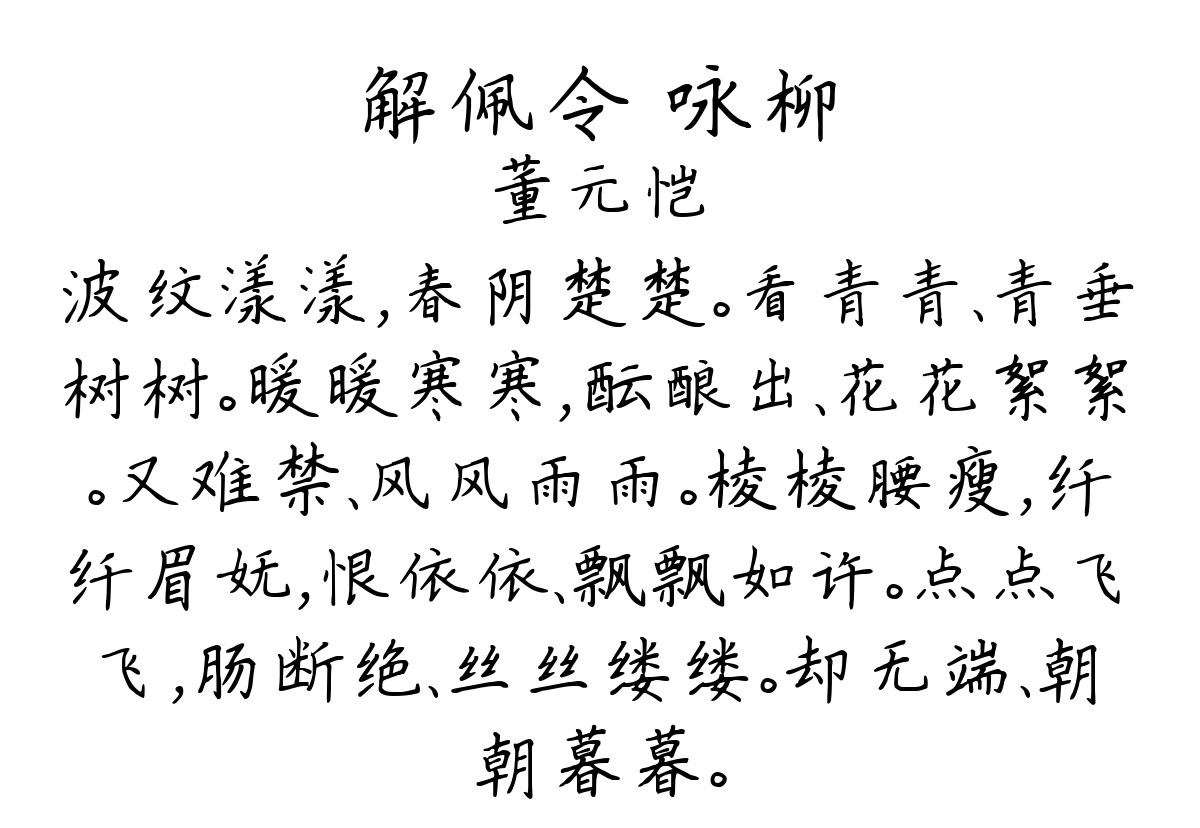 解佩令 咏柳
董元恺
波纹漾漾,春阴楚楚。看青青、青垂
树树。暖暖寒寒,酝酿出、花花絮絮
。又难禁、风风雨雨。棱棱腰瘦,纤
纤眉妩,恨依依、飘飘如许。点点飞
飞,肠断绝、丝丝缕缕。却无端、朝
朝暮暮。